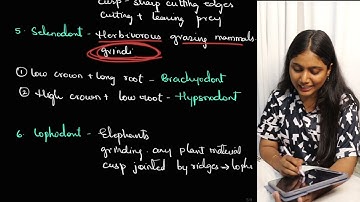 cusp - sharp cutting edges
cutting + tearing prey
5. Selenodont - Herbivorous grazing mammals
grindi
① low crown + long root - Brachyodont
② High crown + low root - Hypsnodont
6. Lophodont - Elephants
grinding. any plant material
cusp jointed by ridges → lophs